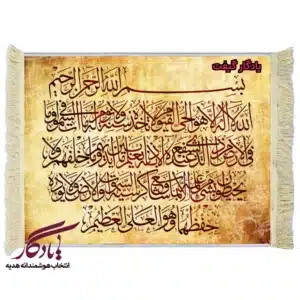 یادگار گیفت
بسم الله الرحمن الرحيم
الله لا اله الا هو الحي القيوم لا تاخذه سنة ولا نوم له ما في السموات وما
في الارض من ذا الذي يشفع عنده الا باذنه يعلم ما بين ايديهم وما خلفهم ولا
يحيطون بشيء من علمه الا بما شاء وسع كرسيه السموات والارض ولا يوده
حفظهما وهو العلي العظيم
یادگار
انتخاب هوشمندانه هدیه